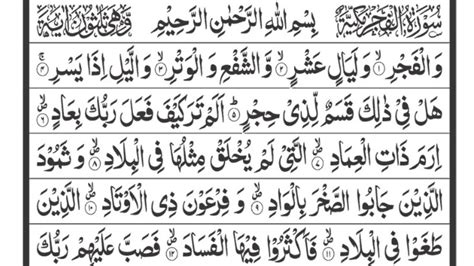 سُوْرَةُ الْفَجْرِ مَكِّيَّةٌ بِسْمِ اللّٰهِ الرَّحْمٰنِ الرَّحِيْمِ وَّهِيَ ثَلٰثُوْنَ اٰيَةً
وَ الْفَجْرِ ۙ﴿۱﴾ وَ لَيَالٍ عَشْرٍ ۙ﴿۲﴾ وَّ الشَّفْعِ وَ الْوَتْرِ ۙ﴿۳﴾ وَ الَّيْلِ اِذَا يَسْرِ ۚ﴿۴﴾
هَلْ فِيْ ذٰلِكَ قَسَمٌ لِّذِيْ حِجْرٍ ؕ﴿۵﴾ اَلَمْ تَرَ كَيْفَ فَعَلَ رَبُّكَ بِعَادٍ ۙ﴿۶﴾
اِرَمَ ذَاتِ الْعِمَادِ ۙ﴿۷﴾ الَّتِيْ لَمْ يُخْلَقْ مِثْلُهَا فِي الْبِلَادِ ۙ﴿۸﴾ وَ ثَمُوْدَ
الَّذِيْنَ جَابُوا الصَّخْرَ بِالْوَادِ ۙ﴿۹﴾ وَ فِرْعَوْنَ ذِي الْاَوْتَادِ ۙ﴿۱۰﴾ الَّذِيْنَ
طَغَوْا فِي الْبِلَادِ ۙ﴿۱۱﴾ فَاَكْثَرُوْا فِيْهَا الْفَسَادَ ۙ﴿۱۲﴾ فَصَبَّ عَلَيْهِمْ رَبُّكَ